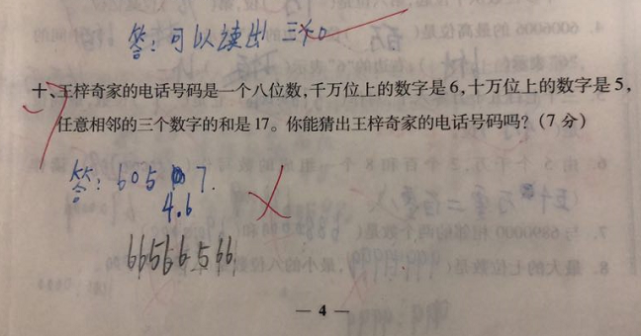 答：可以读出三个0
十、王梓奇家的电话号码是一个八位数，千万位上的数字是6，十万位上的数字是5，
任意相邻的三个数字的和是17。你能猜出王梓奇家的电话号码吗？（7分）
答：605 7.
4.6
66566566
— 4 —